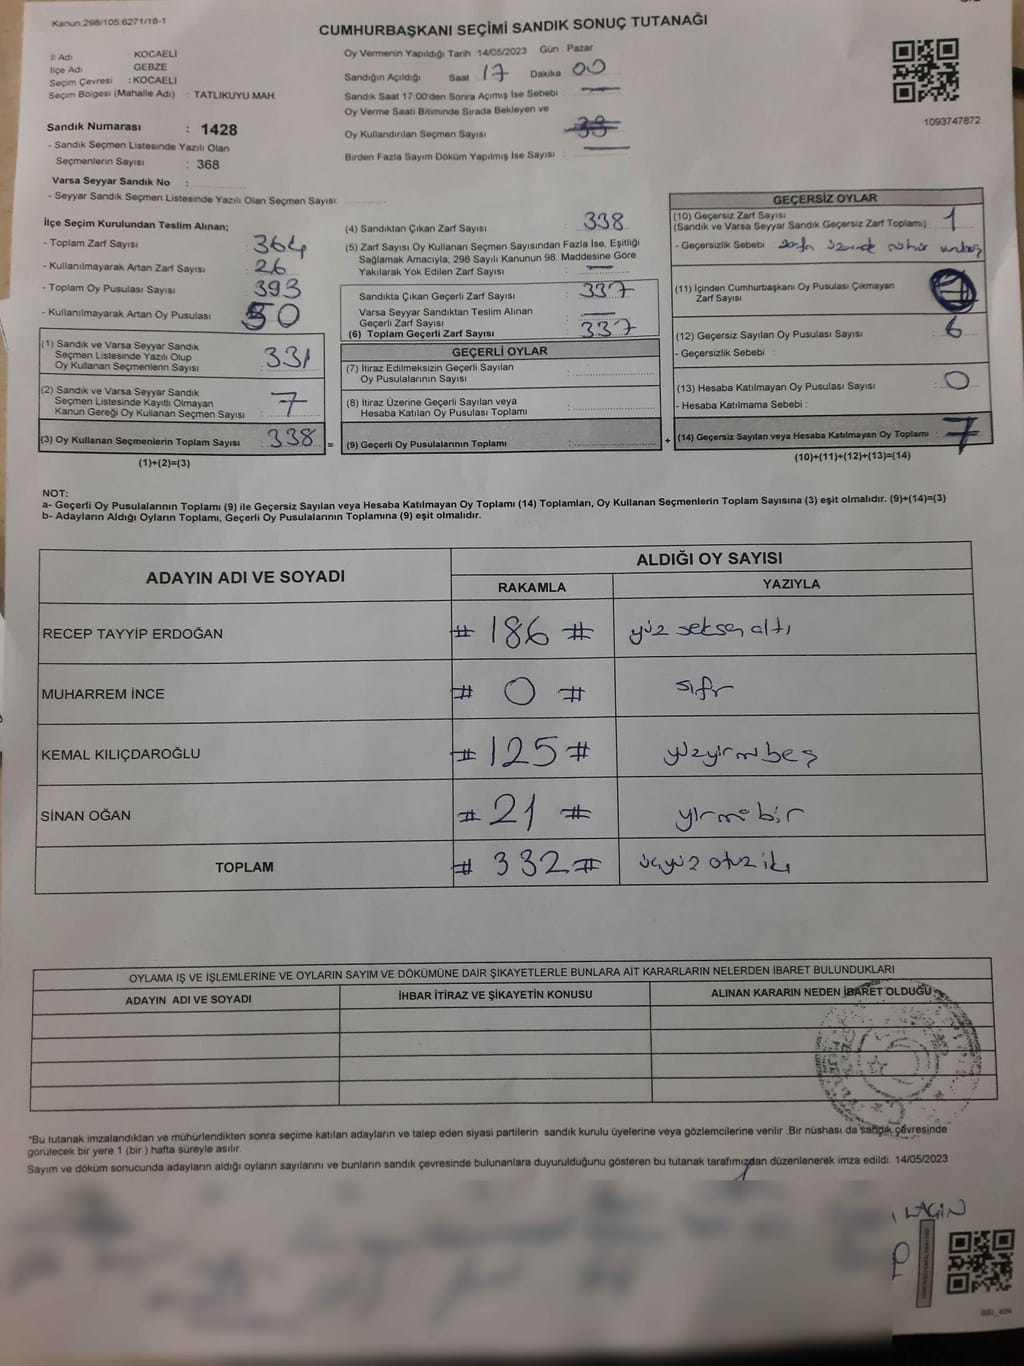 Kanun:298/105,6271/18-1
CUMHURBAŞKANI SEÇİMİ SANDIK SONUÇ TUTANAĞI
İl Adı KOCAELİ
İlçe Adı GEBZE
Seçim Çevresi : KOCAELİ
Seçim Bölgesi (Mahalle Adı) : TATLIKUYU MAH.
Oy Vermenin Yapıldığı Tarih 14/05/2023 Gün : Pazar
Sandığın Açıldığı Saat : 17 Dakika 00
Sandık Saat 17:00'den Sonra Açımış İse Sebebi :
Oy Verme Saati Bitiminde Sırada Bekleyen ve
Oy Kullandırılan Seçmen Sayısı
Birden Fazla Sayım Döküm Yapılmış İse Sayısı :
1093747872
Sandık Numarası : 1428
- Sandık Seçmen Listesinde Yazılı Olan
Seçmenlerin Sayısı : 368
Varsa Seyyar Sandık No :
- Seyyar Sandık Seçmen Listesinde Yazılı Olan Seçmen Sayısı:
İlçe Seçim Kurulundan Teslim Alınan;
- Toplam Zarf Sayısı : 364
- Kullanılmayarak Artan Zarf Sayısı : 26
- Toplam Oy Pusulası Sayısı : 393
- Kullanılmayarak Artan Oy Pusulası : 50
(1) Sandık ve Varsa Seyyar Sandık
Seçmen Listesinde Yazılı Olup
Oy Kullanan Seçmenlerin Sayısı : 331
(2) Sandık ve Varsa Seyyar Sandık
Seçmen Listesinde Kayıtlı Olmayan
Kanun Gereği Oy Kullanan Seçmen Sayısı : 7
(3) Oy Kullanan Seçmenlerin Toplam Sayısı : 338 =
(1)+(2)=(3)
(4) Sandıktan Çıkan Zarf Sayısı : 338
(5) Zarf Sayısı Oy Kullanan Seçmen Sayısından Fazla İse, Eşitliği
Sağlamak Amacıyla; 298 Sayılı Kanunun 98. Maddesine Göre
Yakılarak Yok Edilen Zarf Sayısı :
Sandıkta Çıkan Geçerli Zarf Sayısı : 337
Varsa Seyyar Sandıktan Teslim Alınan
Geçerli Zarf Sayısı :
(6) Toplam Geçerli Zarf Sayısı : 337
GEÇERLİ OYLAR
(7) İtiraz Edilmeksizin Geçerli Sayılan
Oy Pusulalarının Sayısı :
(8) İtiraz Üzerine Geçerli Sayılan veya
Hesaba Katılan Oy Pusulası Toplamı :
(9) Geçerli Oy Pusulalarının Toplamı : +
GEÇERSİZ OYLAR
(10) Geçersiz Zarf Sayısı
(Sandık ve Varsa Seyyar Sandık Geçersiz Zarf Toplamı) : 1
- Geçersizlik Sebebi :
(11) İçinden Cumhurbaşkanı Oy Pusulası Çıkmayan
Zarf Sayısı
(12) Geçersiz Sayılan Oy Pusulası Sayısı : 6
- Geçersizlik Sebebi :
(13) Hesaba Katılmayan Oy Pusulası Sayısı : 0
- Hesaba Katılmama Sebebi :
(14) Geçersiz Sayılan veya Hesaba Katılmayan Oy Toplamı : 7
(10)+(11)+(12)+(13)=(14)
NOT:
a- Geçerli Oy Pusulalarının Toplamı (9) ile Geçersiz Sayılan veya Hesaba Katılmayan Oy Toplamı (14) Toplamları, Oy Kullanan Seçmenlerin Toplam Sayısına (3) eşit olmalıdır. (9)+(14)=(3)
b- Adayların Aldığı Oyların Toplamı, Geçerli Oy Pusulalarının Toplamına (9) eşit olmalıdır.
ADAYIN ADI VE SOYADI ALDIĞI OY SAYISI
RAKAMLA YAZIYLA
RECEP TAYYİP ERDOĞAN # 186 # yüz seksen altı
MUHARREM İNCE # 0 # sıfır
KEMAL KILIÇDAROĞLU # 125 # yüzyirmibeş
SİNAN OĞAN # 21 # yirmi bir
TOPLAM # 332 # üçyüz otuz iki
OYLAMA İŞ VE İŞLEMLERİNE VE OYLARIN SAYIM VE DÖKÜMÜNE DAİR ŞİKAYETLERLE BUNLARA AİT KARARLARIN NELERDEN İBARET BULUNDUKLARI
ADAYIN ADI VE SOYADI İHBAR İTİRAZ VE ŞİKAYETİN KONUSU ALINAN KARARIN NEDEN İBARET OLDUĞU
*Bu tutanak imzalandıktan ve mühürlendikten sonra seçime katılan adayların ve talep eden siyasi partilerin sandık kurulu üyelerine veya gözlemcilerine verilir .Bir nüshası da sandık çevresinde
görülecek bir yere 1 (bir ) hafta süreyle asılır.
Sayım ve döküm sonucunda adayların aldığı oyların sayılarını ve bunların sandık çevresinde bulunanlara duyurulduğunu gösteren bu tutanak tarafımızdan düzenlenerek imza edildi. 14/05/2023